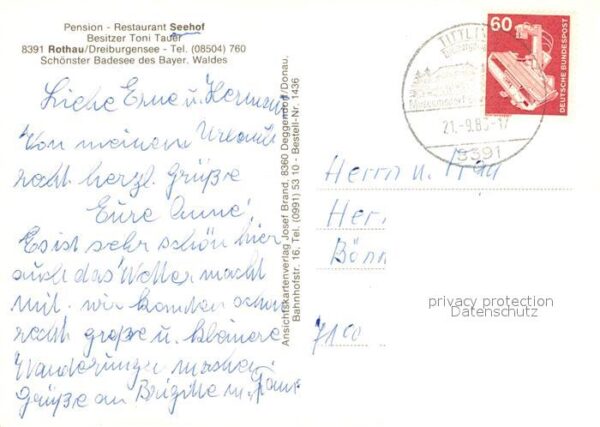 Pension - Restaurant Seehof
Besitzer Toni Tauer
8391 Rothau/Dreiburgensee - Tel. (08504) 760
Schönster Badesee des Bayer. Waldes
Liebe Erne u. Hermann
Von meinem Urlaub
recht herzl. Grüße
Eure Anne!
Es ist sehr schön hier
auch das Wetter macht
mit. wir konnten schon
recht große u. kleinere
Wanderungen machen.
Grüße an Brigitte u.
Ansichtskartenverlag Josef Brand, 8360 Deggendorf/Donau,
Bahnhofstr. 16, Tel. (0991) 53 10 - Bestell-Nr. 1436
60
DEUTSCHE BUNDESPOST
TITTLING
Museumsdorf
21.-9.83-17
8391
Herrn u. Frau
Her
Bönn
7100
privacy protection
Datenschutz